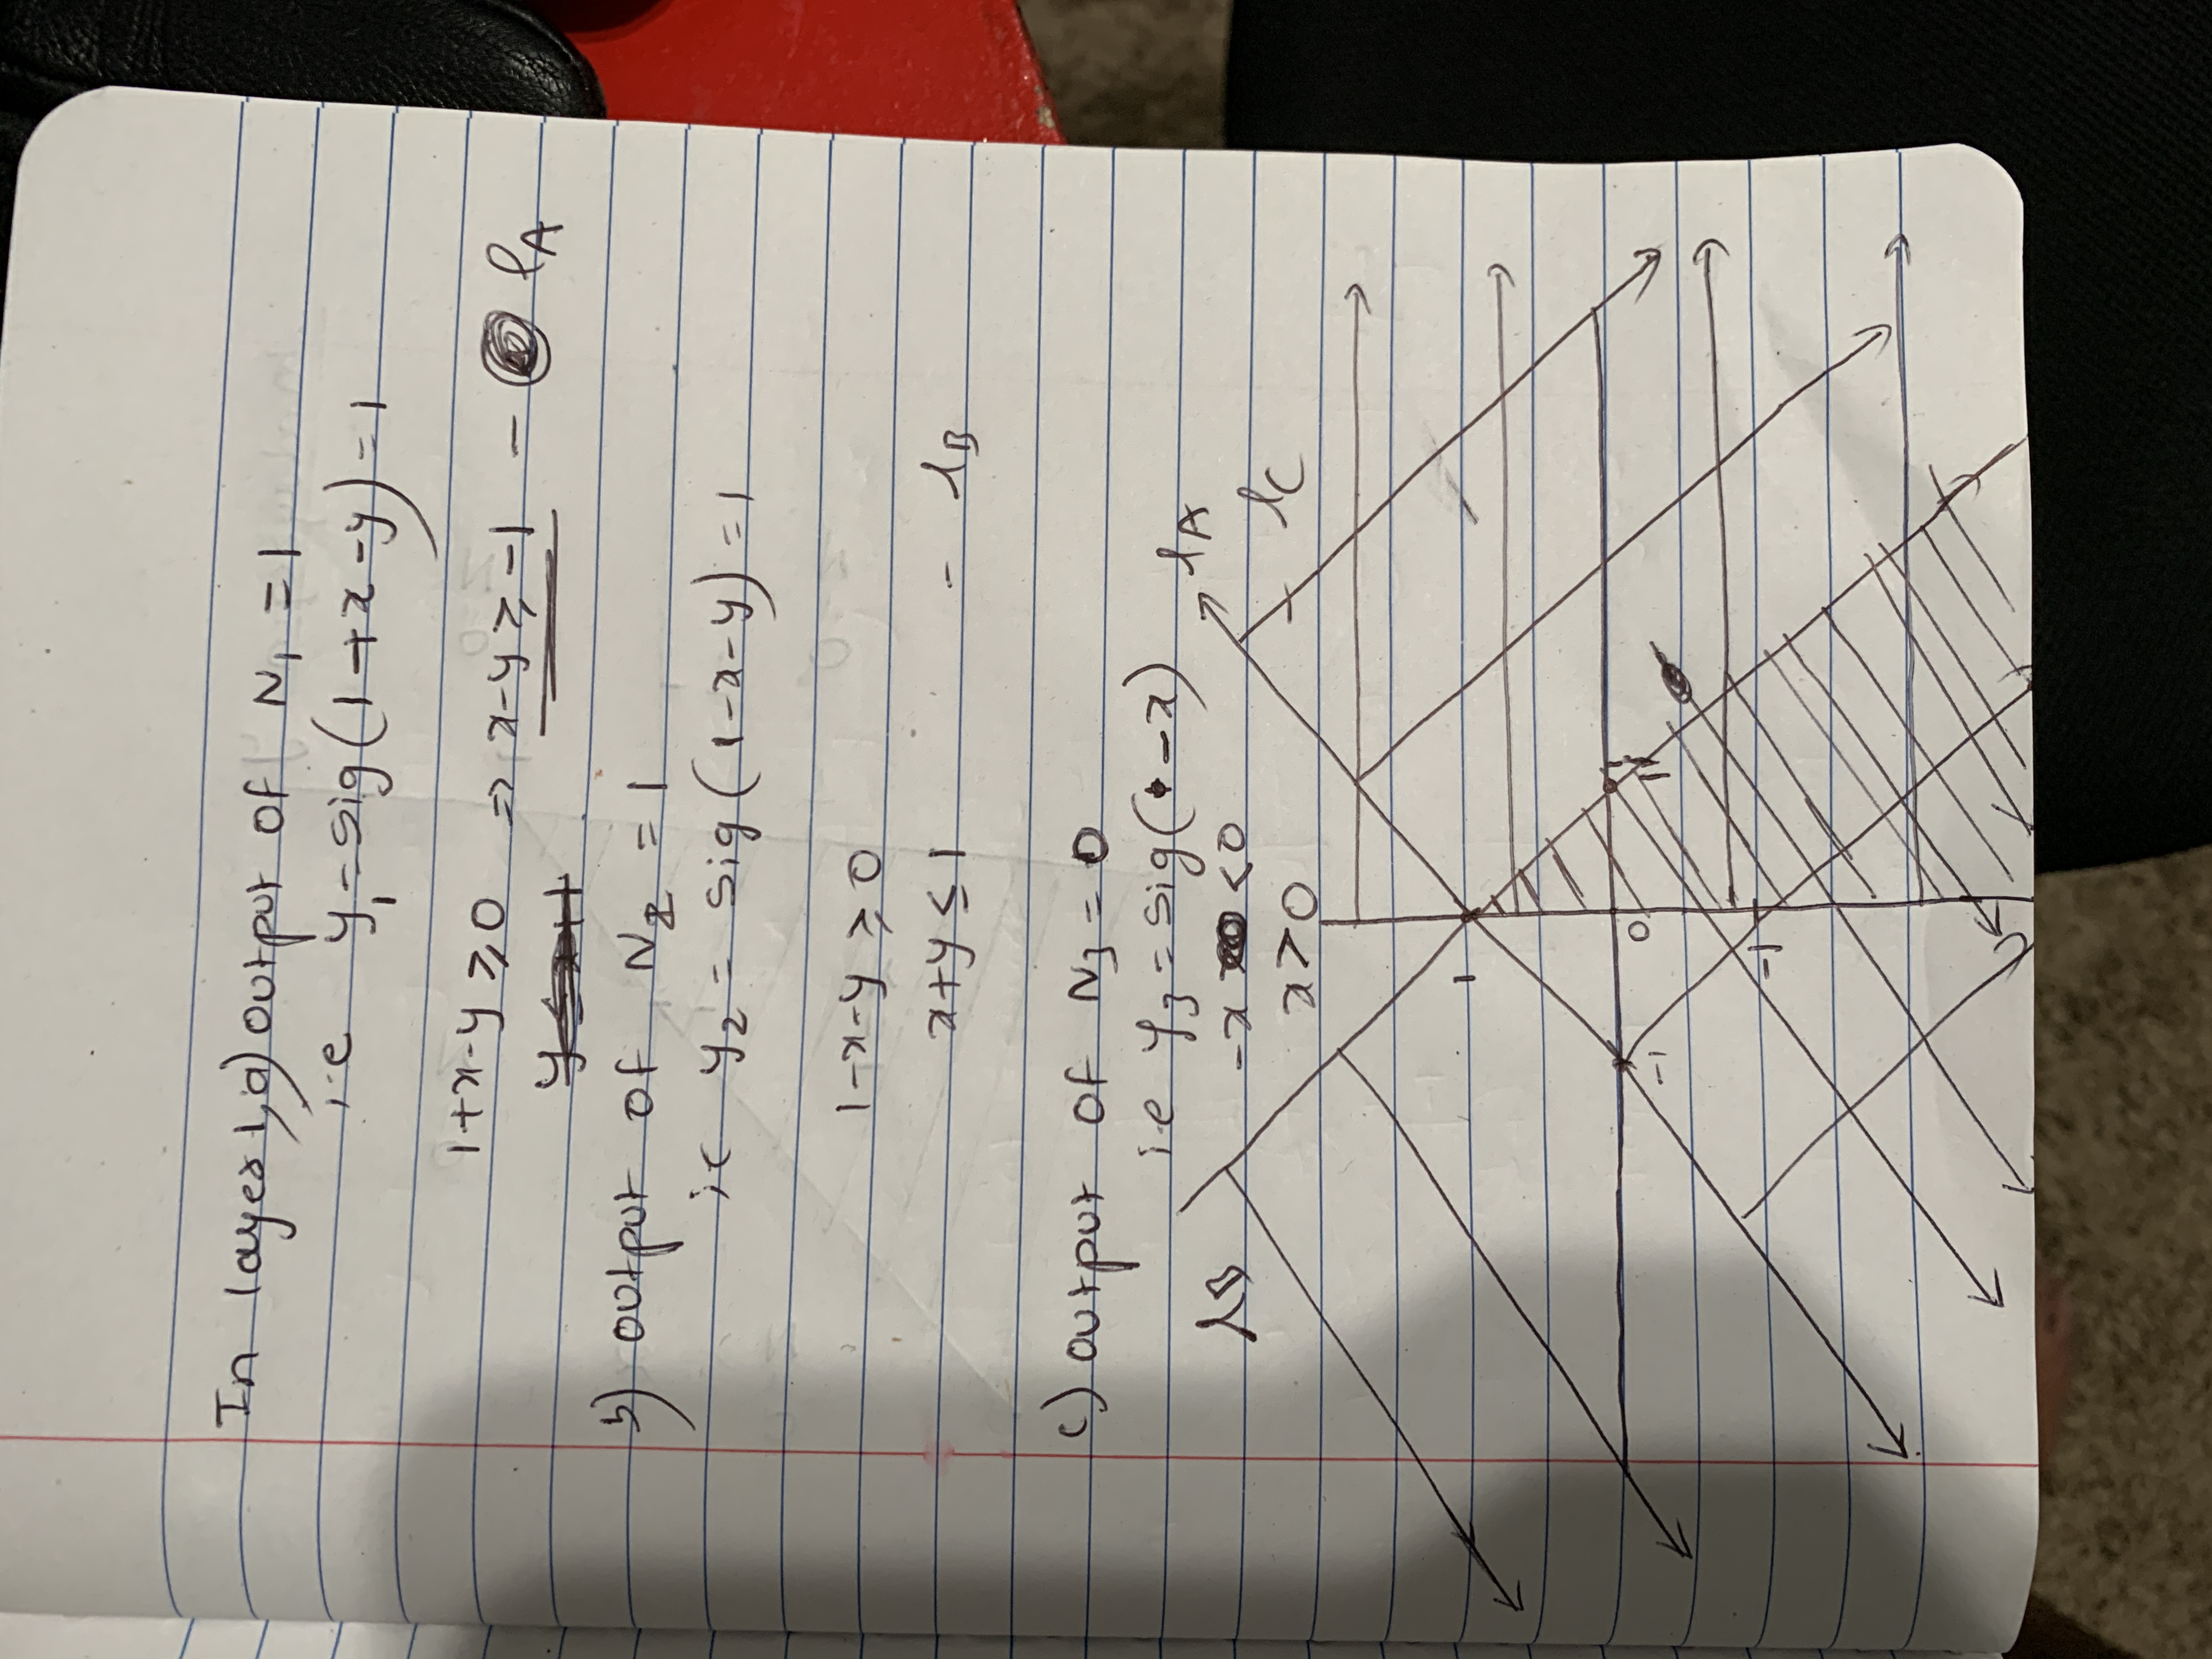 In layer 1, a) output of N₁ = 1
i.e y₁ = sig(1+x-y) = 1
1+x-y ≥ 0 ⇒ x-y ≥ -1 - l_A
b) output of N₂ = 1
ie y₂ = sig(1-x-y) = 1
1-x-y ≥ 0
x+y ≤ 1 - l_B
c) output of N₃ = 0
i.e y₃ = sig(-x)
l_A
l_B -x < 0
x > 0 - l_C
1
-1 0 1
-1